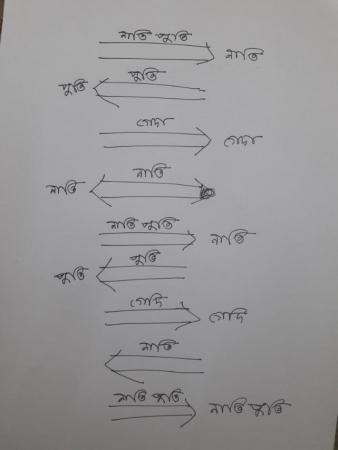 নাতি পুতি
নাতি
পুতি
পুতি
গেদা
গেদা
নাতি
নাতি
নাতি পুতি
নাতি
পুতি
পুতি
গেদি
গেদি
নাতি
নাতি পুতি
নাতি পুতি